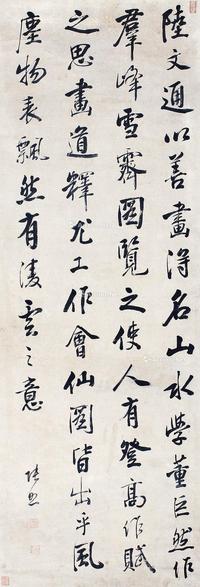 陸文通以善畫得名山水學董巨然作
羣峰雪霽圖覽之使人有登高作賦
之思畫道釋尤工作會仙圖皆出乎風
塵物表飄然有凌雲之意